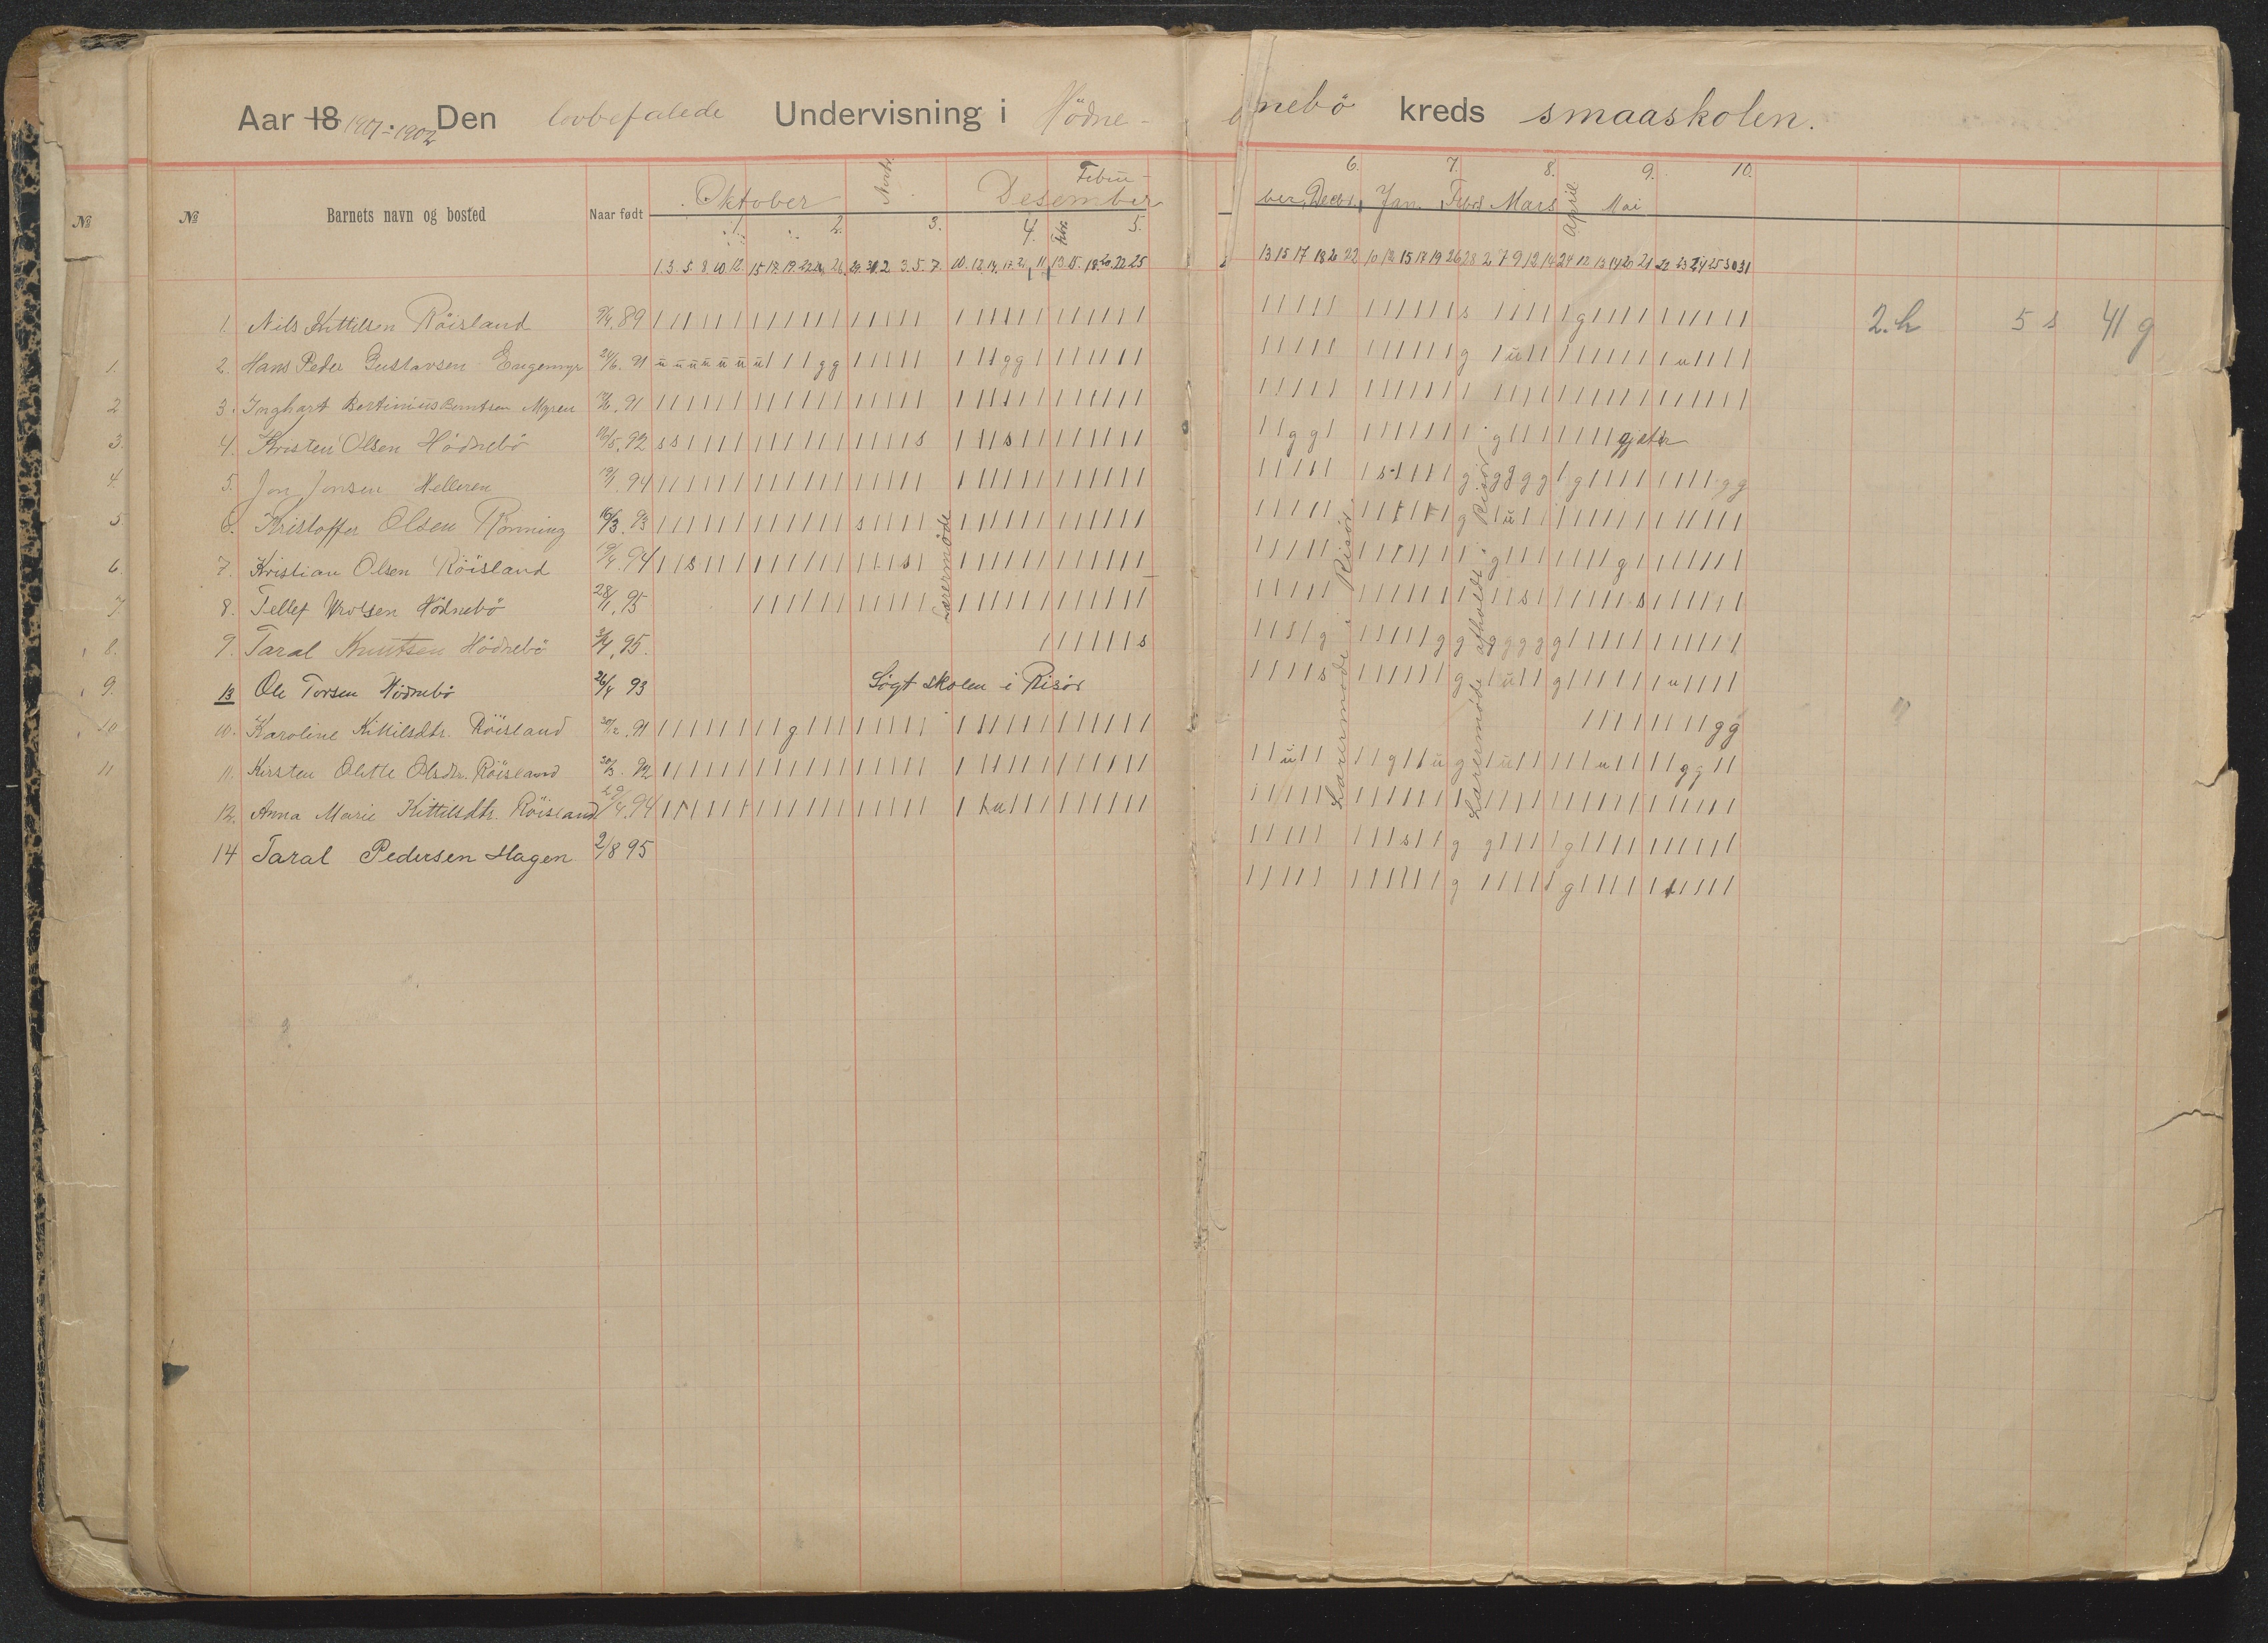 Aar 18 1901-1902 Den lovbefalede Undervisning i Hödne-
nebö kreds smaaskolen.
№ № Barnets navn og bosted Naar født
Oktober Novbr. Desember Febru-
1. 2. 3. 4. Febr. 5.
1. 3. 5. 8. 10. 12. 15 17. 19. 22 24 26. 29. 31. 2 3. 5. 7. 10. 12. 14. 17. 21 11 13 15. 18. 20. 22 25
6. 7. 8. 9. 10.
ber, Decbr, Jan. Febr Mars April Mai
13 15 17 18 20 22 10 12 15 17 19 26 28 2 7 9 12 14 24 12 13 14 20 21 22 23 24 25 30 31
1. Nils Kittilsen Röisland 9/4. 89
2. Hans Peder Gustavsen Engemyr 24/6. 91 u u u u u u u g g g g
3. Inghart Bertinius Berntsen Myren 91
4. Kristen Olsen Hödnebö 10/5. 92 s s s s
5. Jon Jensen Helleren 19/1. 94
6. Kristoffer Olsen Rönning 16/3. 93 s
7. Kristian Olsen Röisland 19/4. 94 s s
8. Tellef Hödnebö 28/1. 95
9. Taral Knutsen Hödnebö 3/4. 95. s
13 Ole Torsen Hödnebö 26/4 93 Søgt skolen i Risör
10. Karoline Kittilsdtr. Röisland 30/12. 91 g
11. Kirsten Olette Olsdtr. Röisland 30/3. 92
12. Anna Marie Kittilsdtr. Röisland 29/4. 94 h u
14 Taral Pedersen Hagen 2/8 95
Lærermöde
s g
g u u
g g g gjæter
s g g g g g g g g
g u
g g
s s
s g g g g g g g g
s g u g u
g g
u g u g u u g g
s g g g
g g
Lærermöde i Risör.
Lærermöde afholdt i Risör
2. h 5 s 41 g
1.
2
3.
4.
5
6.
7
8.
9.
10
11